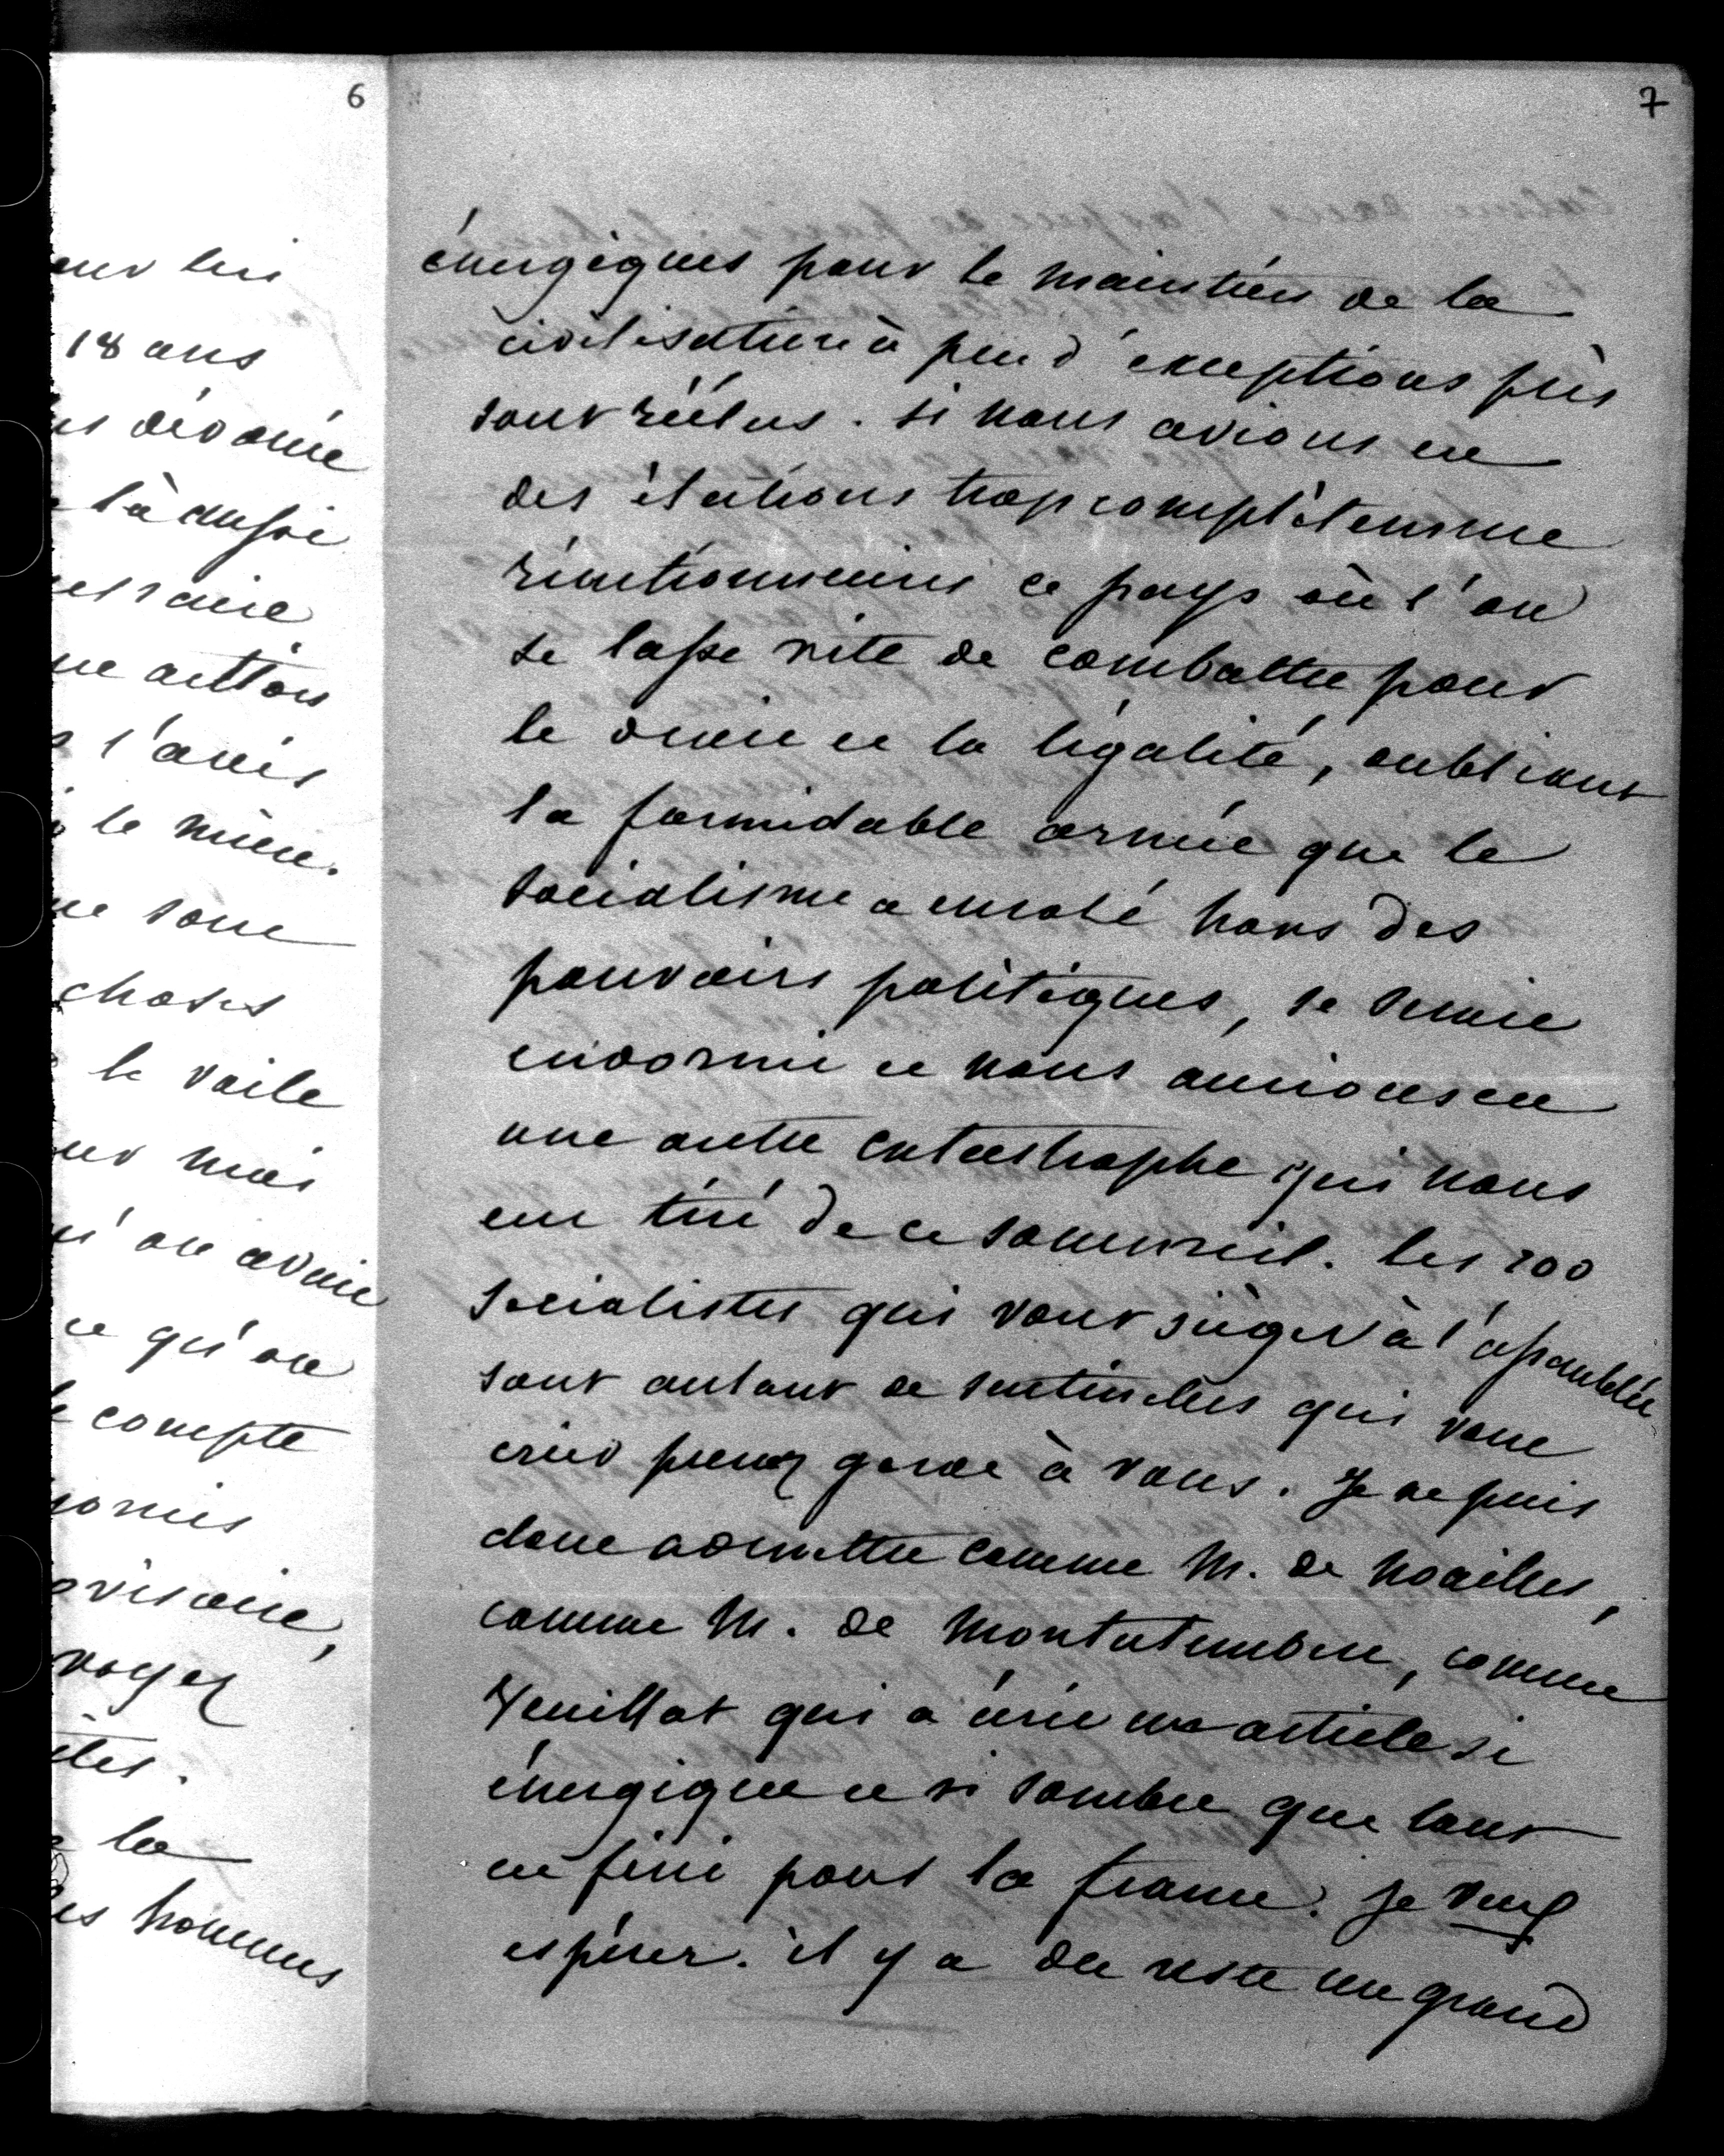 6
eur lui
18 ans
dévoué
là aussi
me
action
l'avis
le mien.
sont
choses
le voile
mais
on avait
ce qu'on
compte
visoire,
voyez
la
es hommes
7
énergiques pour le maintien de la
civilisation à peu d'exceptions près
sont réélus. si nous avions eu
des élections trop complètement
réactionnaires ce pays où l'on
se lasse vite de combattre pour
le droit et la légalité, oubliant
la formidable armée que le
socialisme a enrolé hors des
pouvoirs politiques, se serait
endormi et nous aurions eu
une autre catastrophe qui nous
eut tiré de ce sommeil. les 200
socialistes qui vont siéger à l'assemblée
sont autant de sentinelles qui vont
crier prenez garde à vous. Je ne puis
donc admettre comme M. de Noailles,
comme M. de Montalembert, comme
Veuillot qui a écrit un article si
énergique et si sombre que tout
est fini pour la france. Je veux
espérer. il y a du reste un grand